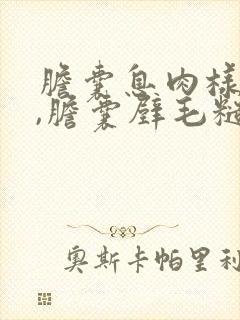 膽囊息肉樣
,膽囊壁毛糙
奧斯卡帕里利